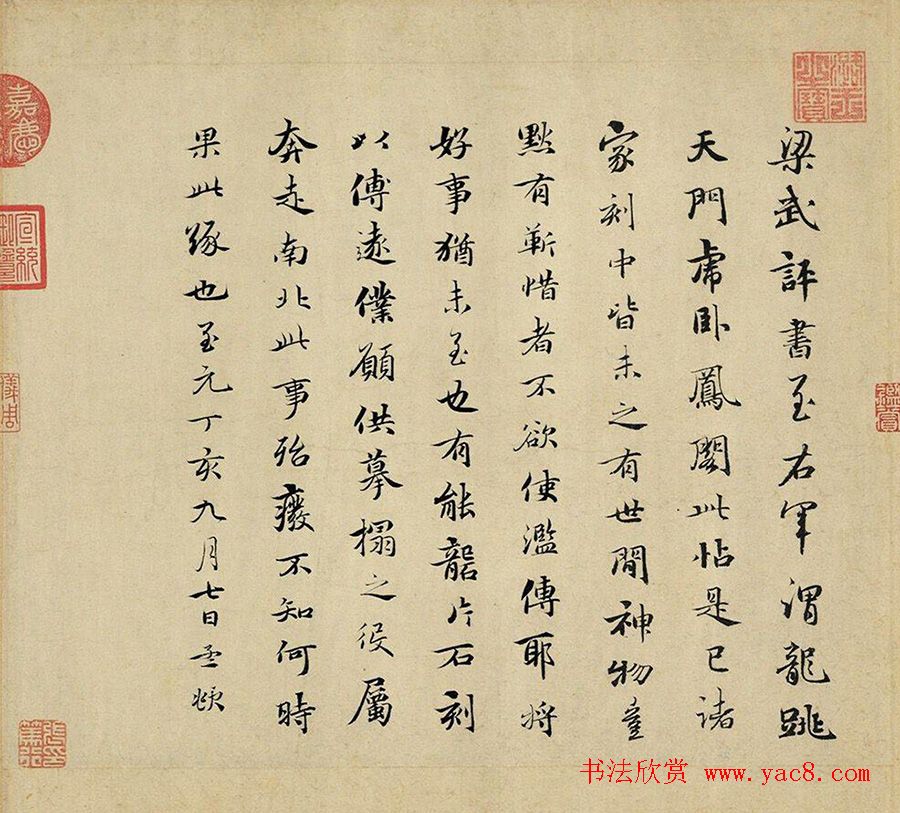 梁武評書至右軍謂龍跳
天門虎卧鳳閣此帖是已諸
家刻中皆未之有世間神物豈
黙有靳惜者不欲使濫傳耶将
好事猶未至也有能龍片石刻
以傳遠僕願供摹搨之役屬
奔走南北此事殆癈不知何時
果此緣也至元丁亥九月七日孟頫
嘉慶
儀周
鑑賞
书法欣赏 www.yac8.com